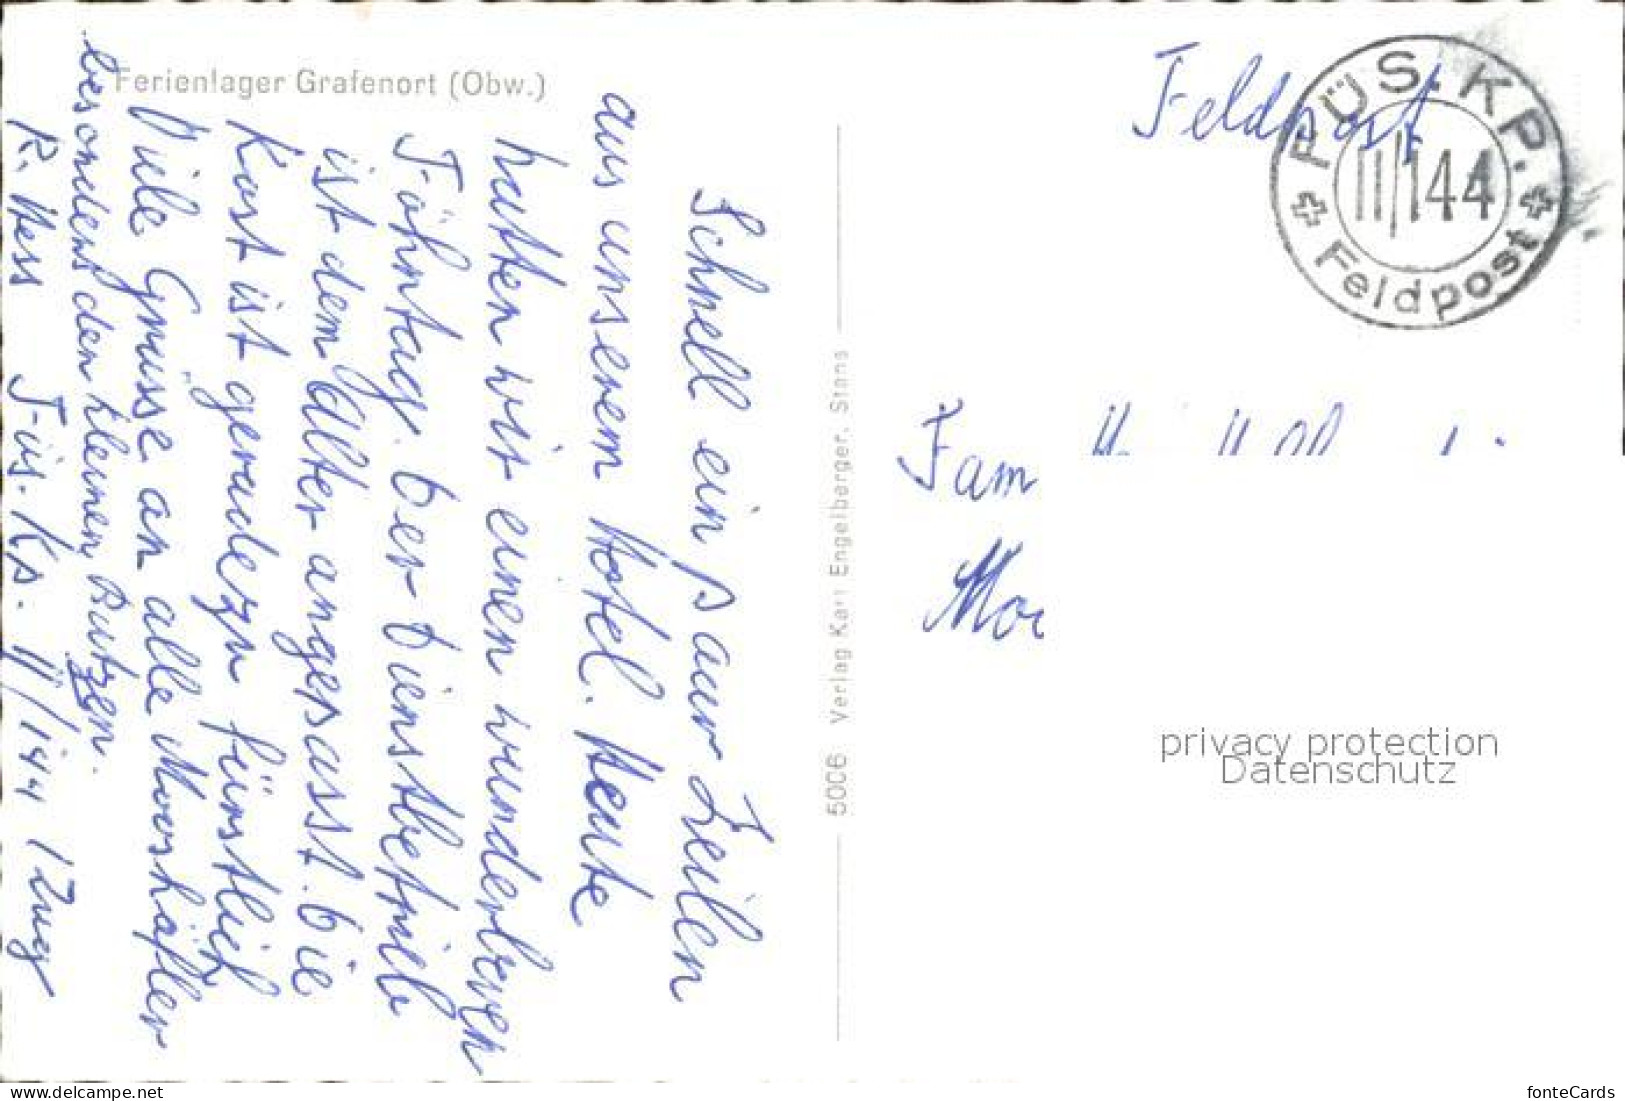 Ferienlager Grafenort (Obw.)
Schnell ein paar Zeilen
aus unserem Hotel. Heute
hatten wir einen wunderbaren
Föhntag. Der Dienstbetrieb
ist dem Alter angepasst. Die
Kost ist geradezu fürstlich
Viele Grüsse an alle Mooshäfler
besonders den kleinen Butzen.
R. Hess Füs. Kp. II/144 1 Zug
5006 Verlag Karl Engelberger, Stans
Feldpost
FÜS. KP.
II/144
Feldpost
Fam
privacy protection
Datenschutz
delcampe.net
fonteCards